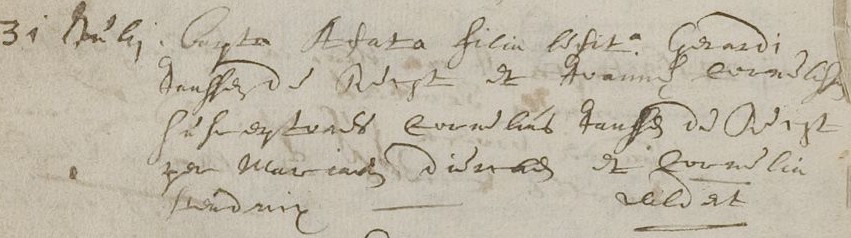 31 Julij. Bapta Agata filia legita. Gerardi
Janssen de Reest et Joanna Cornelissen
susceptores Cornelius Janssen de Reest
per Mariam Diercks et Cornelia
Hendrix